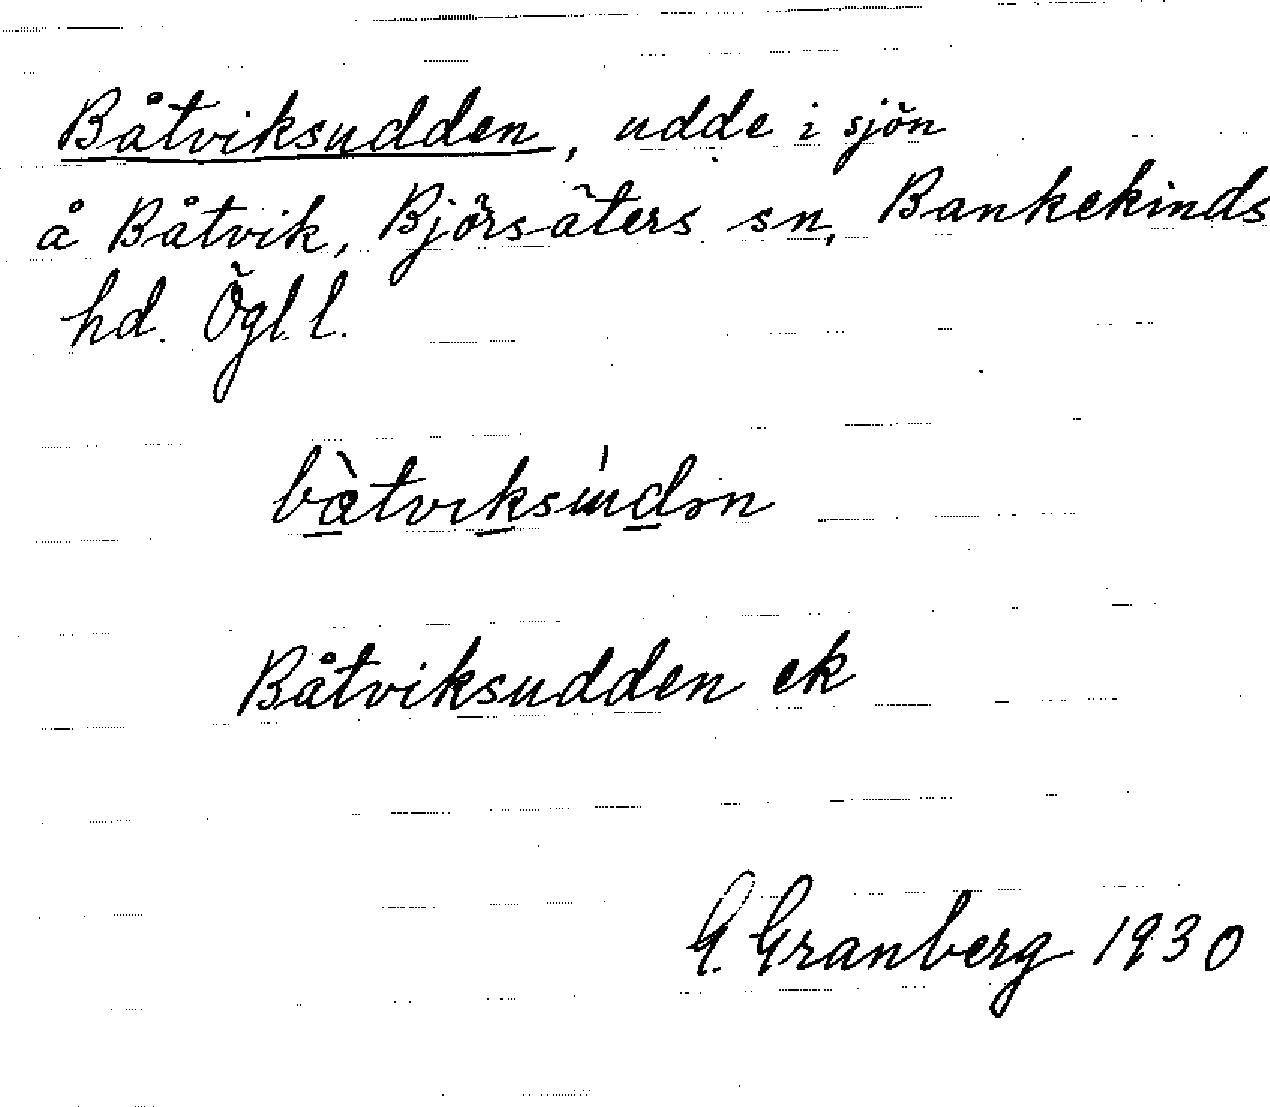 Båtviksudden, udde i sjön
å Båtvik, Björsäters sn, Bankekinds
hd. Ögl l.
Båtviksudden ek
G. Granberg 1930